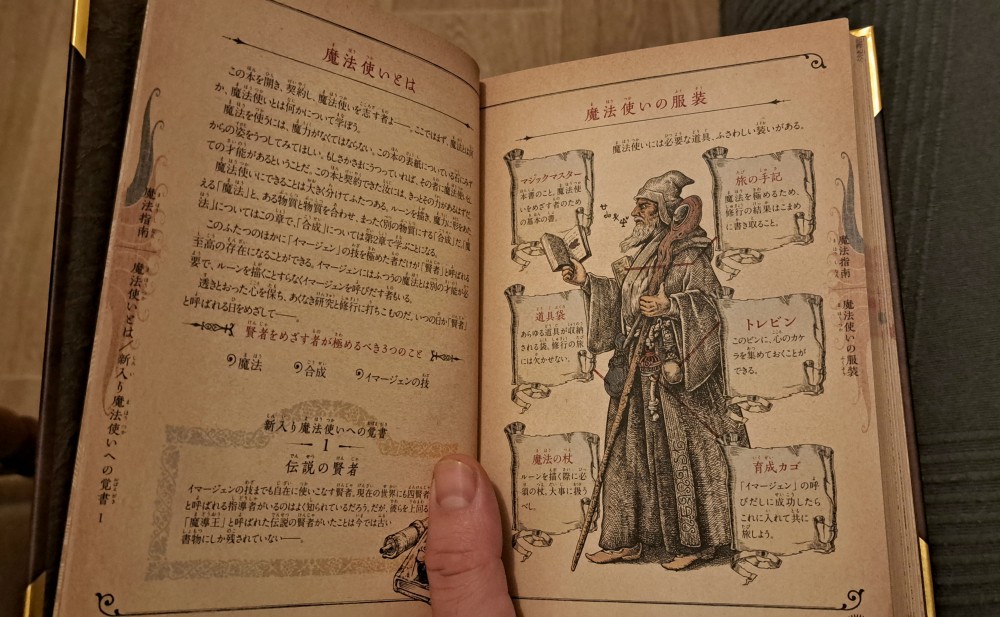 魔法使いとは
この本を開き、契約し、魔法使いを志す者よ――。ここではまず、魔法とは何
か、魔法使いとは何かについて学ぼう。
魔法を使うには、魔力がなくてはならない。この本の表紙についている石にみず
からの姿をうつしてみてほしい。もしさかさまにうつっていれば、その者に魔法使いとし
ての才能があるということだ。この本と契約できた汝には、きっとその力があるはずだ。
魔法使いにできることは大きく分けてふたつある。ルーンを描き、魔力に形をあた
える「魔法」と、ある物質と物質を合わせ、まったく別の物質にする「合成」だ。「魔
法」についてはこの章で、「合成」については第2章で学ぶことになる。
このふたつのほかに「イマージェン」の技を極めた者だけが「賢者」と呼ばれる
至高の存在になることができる。イマージェンにはふつうの魔法とは別の才能が必
要で、ルーンを描くことすらなくイマージェンを呼びだす者もいる。
透きとおった心を保ち、あくなき研究と修行に打ちこむのだ。いつの日か「賢者」
と呼ばれる日をめざして――。
賢者をめざす者が極めるべき3つのこと
魔法 合成 イマージェンの技
新入り魔法使いへの覚書
1
伝説の賢者
イマージェンの技までも自在に使いこなす賢者。現在の世界にも四賢者
と呼ばれる指導者がいるのはよく知られているだろう。だが、彼らを上回る
「魔導王」と呼ばれた伝説の賢者がいたことは今では古い
書物にしか残されていない――。
魔法指南 魔法使いとは/新入り魔法使いへの覚書 1
魔法使いの服装
魔法使いには必要な道具、ふさわしい装いがある。
マジックマスター
本書のこと。魔法使
いをめざす者のため
の基本の書。
旅の手記
魔法を極めるため、
修行の結果はこまめ
に書き取ること。
道具袋
あらゆる道具が収納
される袋。修行の旅
には欠かせない。
トレビン
このビンに、心のカケ
ラを集めておくことが
できる。
魔法の杖
ルーンを描く際に必
須の杖。大事に扱う
べし。
育成カゴ
「イマージェン」の呼
びだしに成功したら
これに入れて共に
旅しよう。
魔法指南 魔法使いの服装